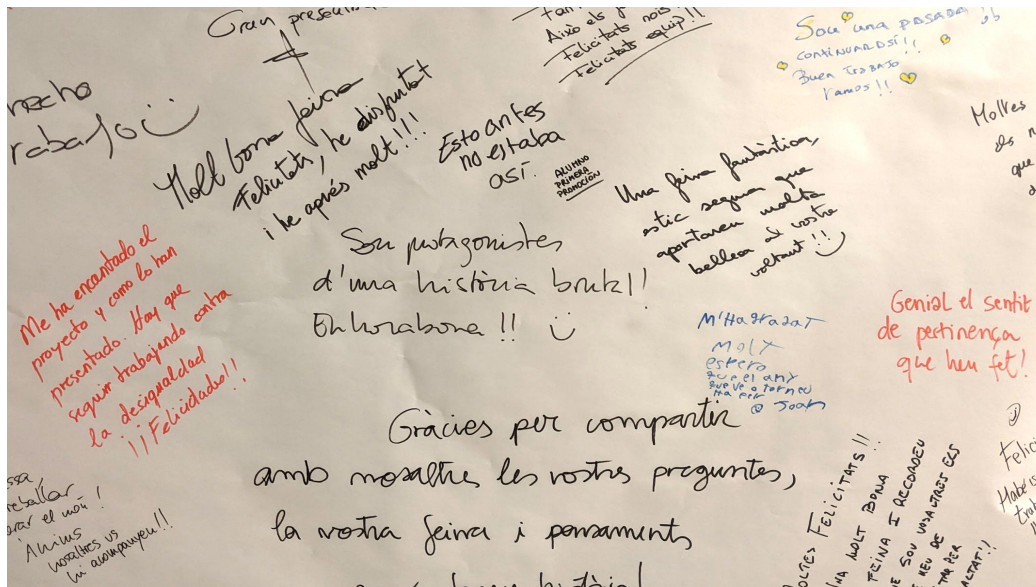 Gran
necho
Molt bona feina
Felicitats, he disfrutat
i he aprés molt!!!
Això els
Felicitats nois
Felicitats equip!!
Sou una pasada
CONTINUAR
BUEN TRABAJO
Vamos!!
Esto antes
no estaba
así.
ALUMNO
PRIMERA
PROMOCIÓN
Una feina fantàstica,
estic segura que
aportareu molta
bellesa al vostre
voltant!!
Moltes
Me ha encantado el
proyecto y como lo han
presentado. Hay que
seguir trabajando contra
la desigualdad
¡¡Felicidades!!
Sou protagonistes
d'una història brutal!
Enhorabona!!
M'HA AGRADAT
MOLT
espero
que el any
que ve o torneu
Ha fer
Joan
Genial el sentit
de pertinença
que heu fet!
Gràcies per compartir
amb nosaltres les vostres preguntes,
la vostra feina i pensaments
el món!
Ànims
nosaltres us
hi acompanyem!!
FELICITATS!!
MOLT BONA
FEINA I RECORDEU
SOU VOSALTRES ELS